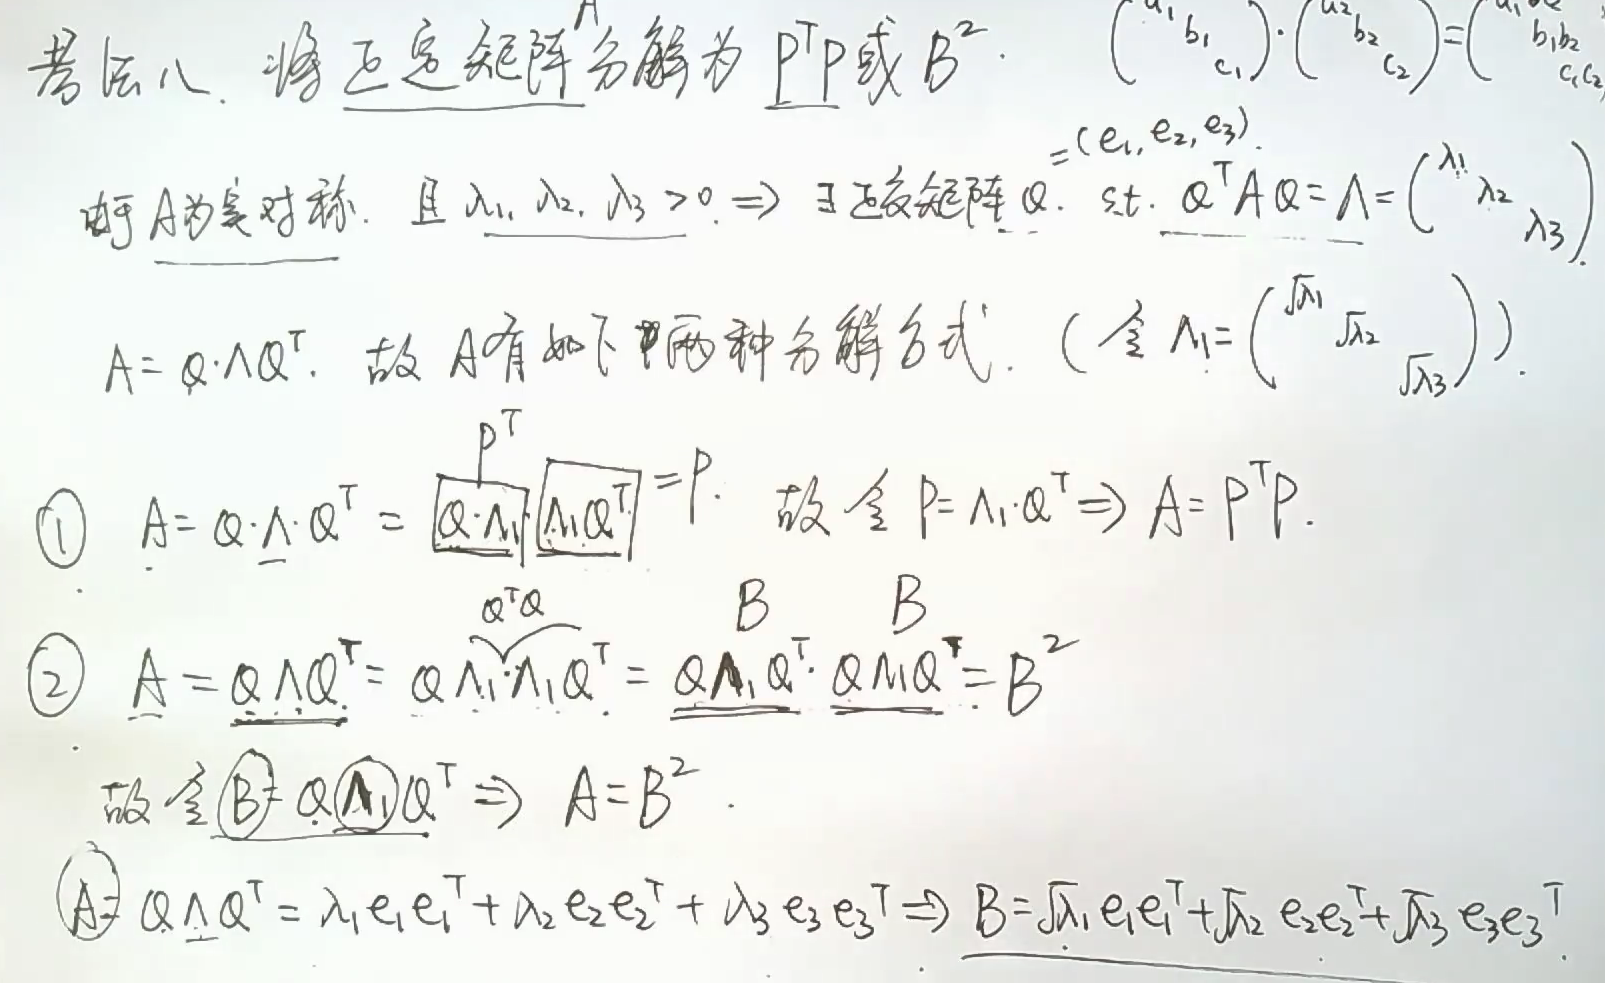 考法八、将正定矩阵A分解为 PᵀP或 B².
(a₁ b₁ c₁)·(a₂ b₂ c₂)=( b₁b₂ c₁c₂
由于A为实对称. 且 λ₁, λ₂, λ₃>0. ⇒ ∃正交矩阵Q=(e₁, e₂, e₃). s.t. QᵀAQ=Λ=(λ₁ λ₂ λ₃).
A=Q·ΛQᵀ. 故 A有如下两种分解方式. (令 Λ₁=(√λ₁ √λ₂ √λ₃)).
Pᵀ
① A=Q·Λ·Qᵀ = Q·Λ₁ Λ₁Qᵀ =P. 故令 P=Λ₁·Qᵀ ⇒ A=PᵀP.
QᵀQ B B
② A=QΛQᵀ= QΛ₁·Λ₁Qᵀ = QΛ₁Qᵀ·QΛ₁Qᵀ=B²
故令 B=QΛ₁Qᵀ ⇒ A=B².
A=QΛQᵀ=λ₁e₁e₁ᵀ+λ₂e₂e₂ᵀ+λ₃e₃e₃ᵀ ⇒ B=√λ₁e₁e₁ᵀ+√λ₂e₂e₂ᵀ+√λ₃e₃e₃ᵀ